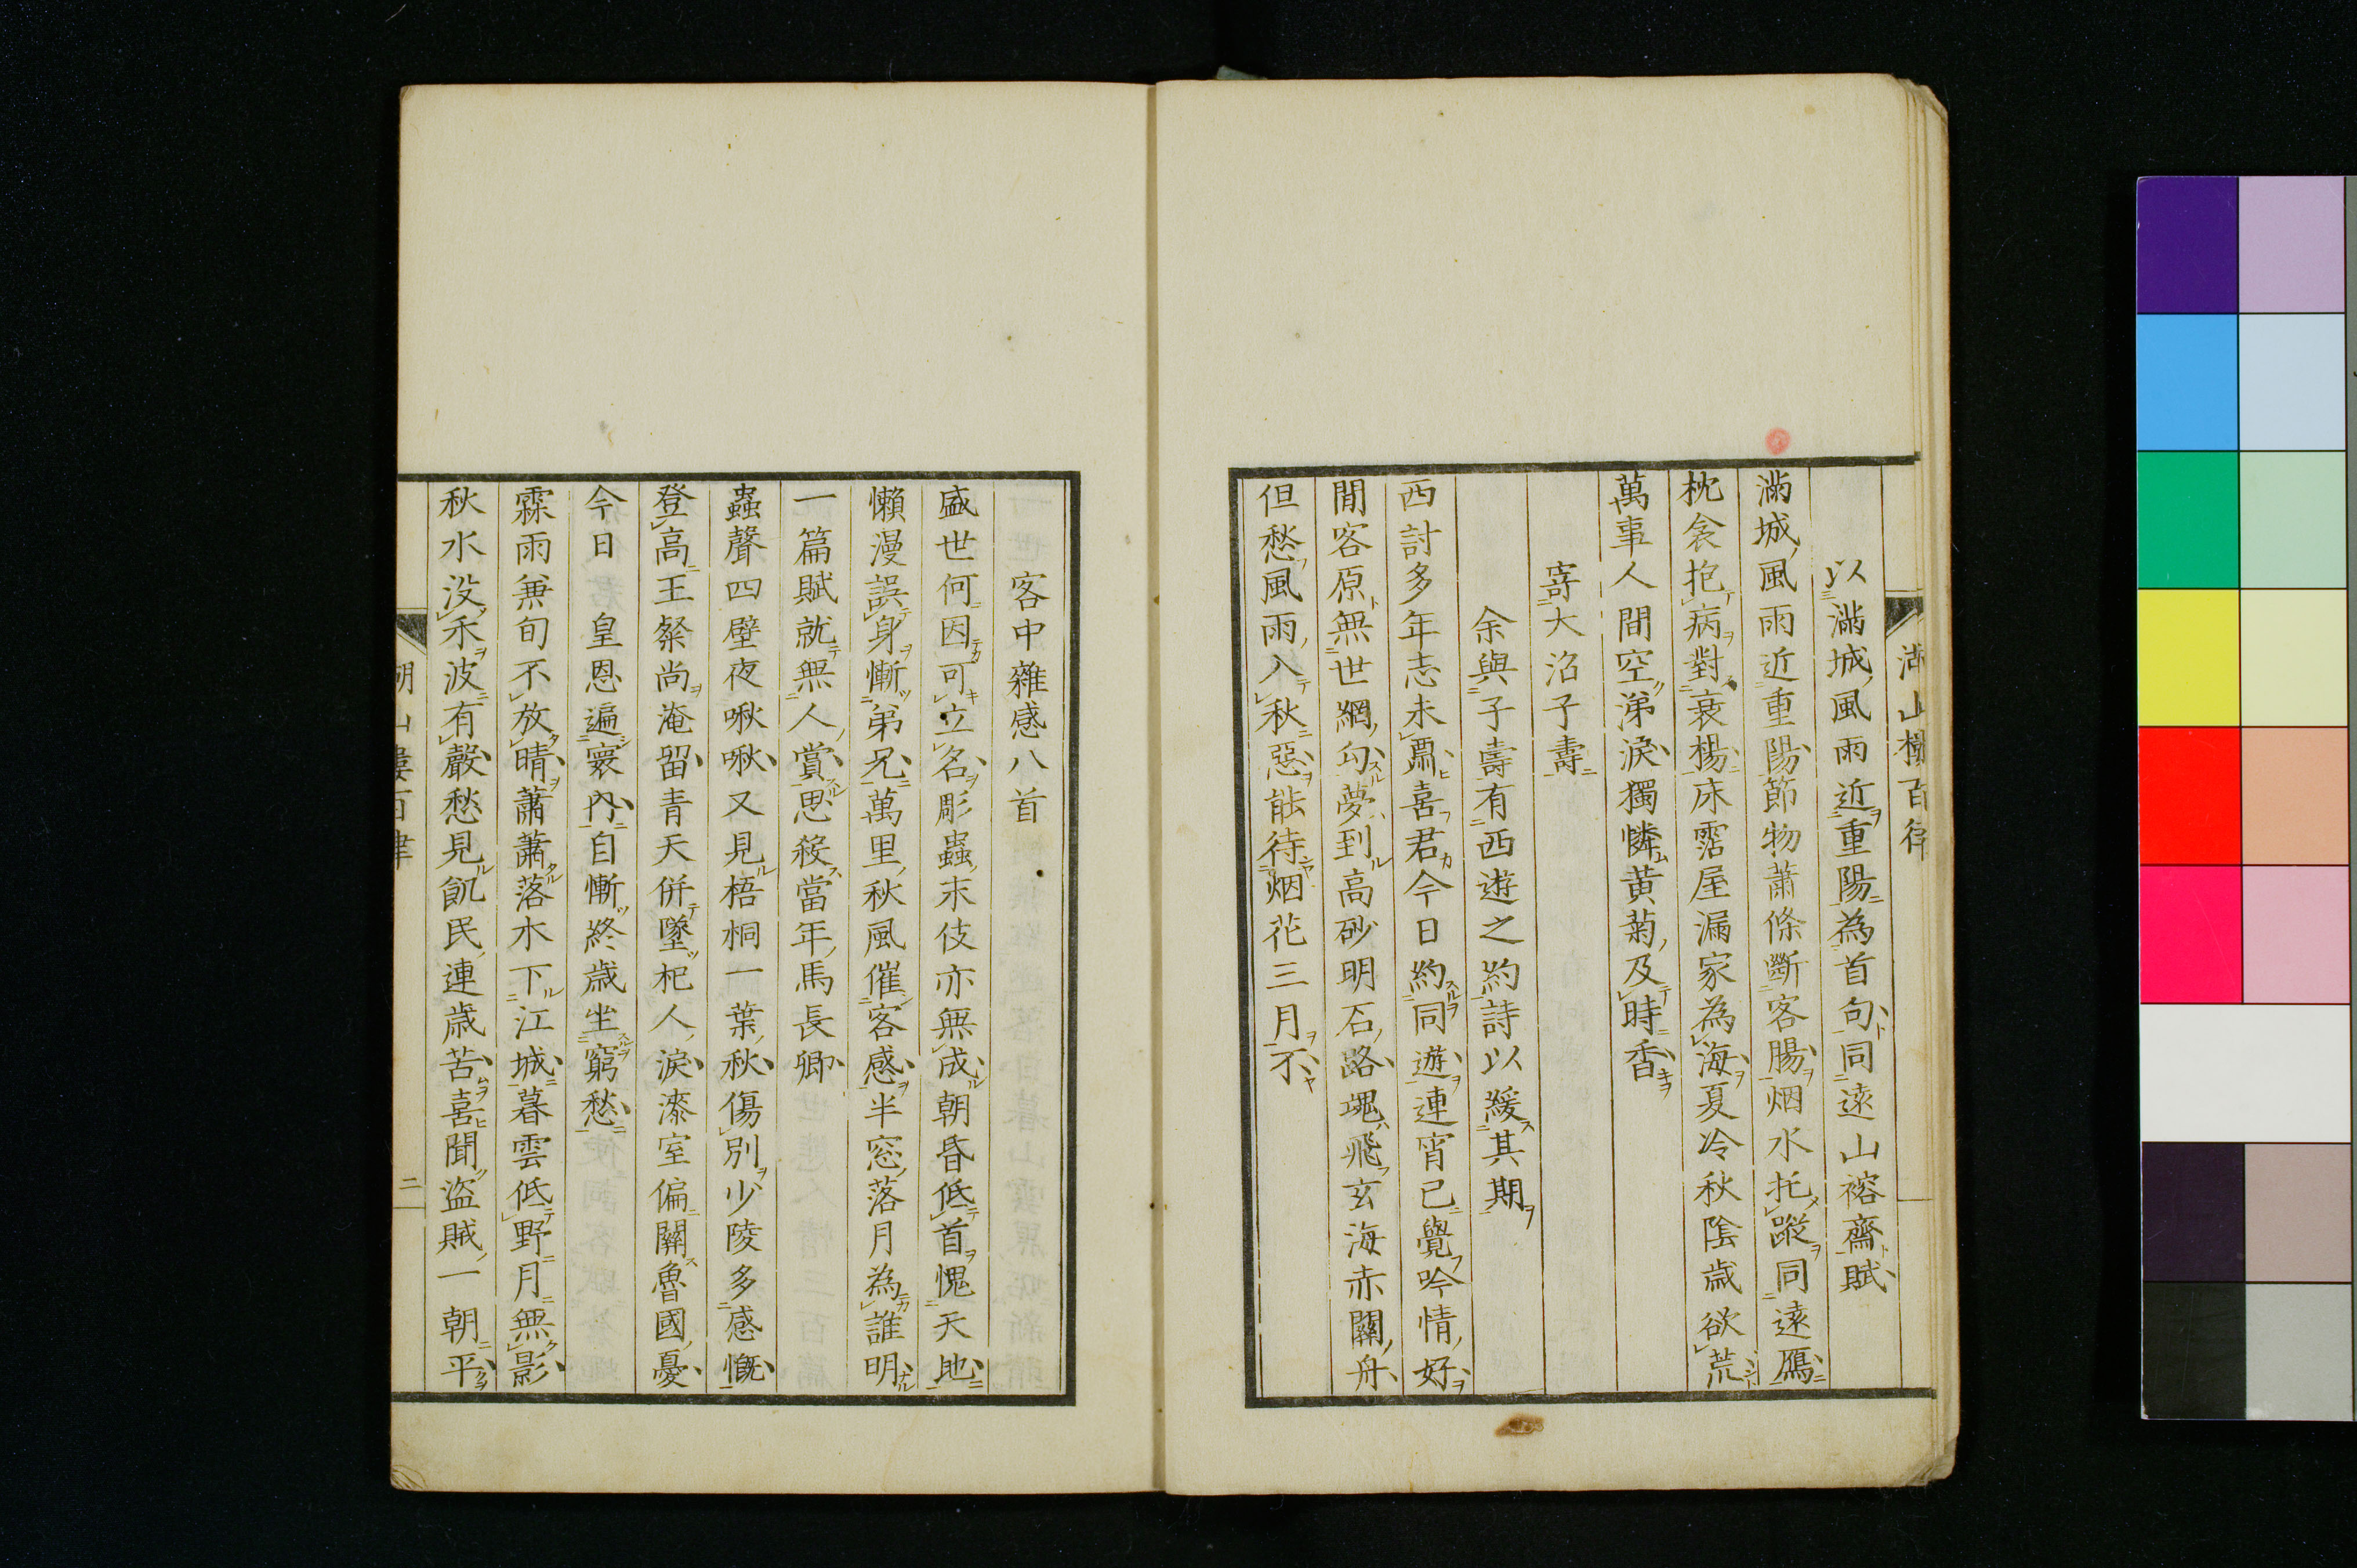 湖山樓百律
以滿城風雨近重陽為首句同遠山褣齋賦
滿城風雨近重陽節物蕭條斷客腸烟水托蹤同遠鴈
枕衾抱病對衰楊床霑屋漏家為海夏冷秋陰歳欲荒
萬事人間空涕淚獨憐黃菊及時香
寄大沼子壽
余與子壽有西遊之約詩以緩其期
西討多年志未齊喜君今日約同遊連宵已覺吟情好
閒客原無世網勾夢到高砂明石路魂飛玄海赤關舟
但愁風雨入秋惡能待烟花三月不
客中雜感八首
盛世何因可立名彫蟲末伎亦無成朝昏低首愧天地
懶漫誤身慚弟兄萬里秋風催客感半窓落月為誰明
一篇賦就無人賞思殺當年馬長卿
蟲聲四壁夜啾啾又見梧桐一葉秋傷別少陵多感慨
登高王粲尚淹留青天併墜杞人淚漆室偏關魯國憂
今日皇恩遍寰内自慚終歳坐窮愁
霖雨兼旬不放晴蕭蕭落木下江城暮雲低野月無影
秋水没禾波有聲愁見飢民連歳苦喜聞盜賊一朝平
湖山樓百律
二